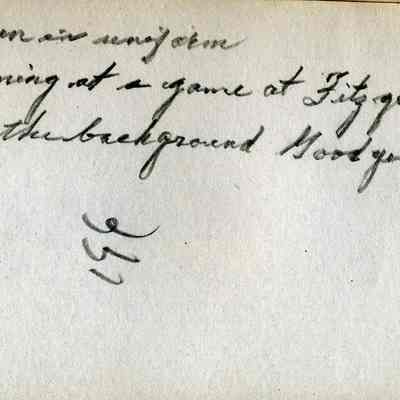 in uniform
ning at a game at Fitzge
the background Good ye